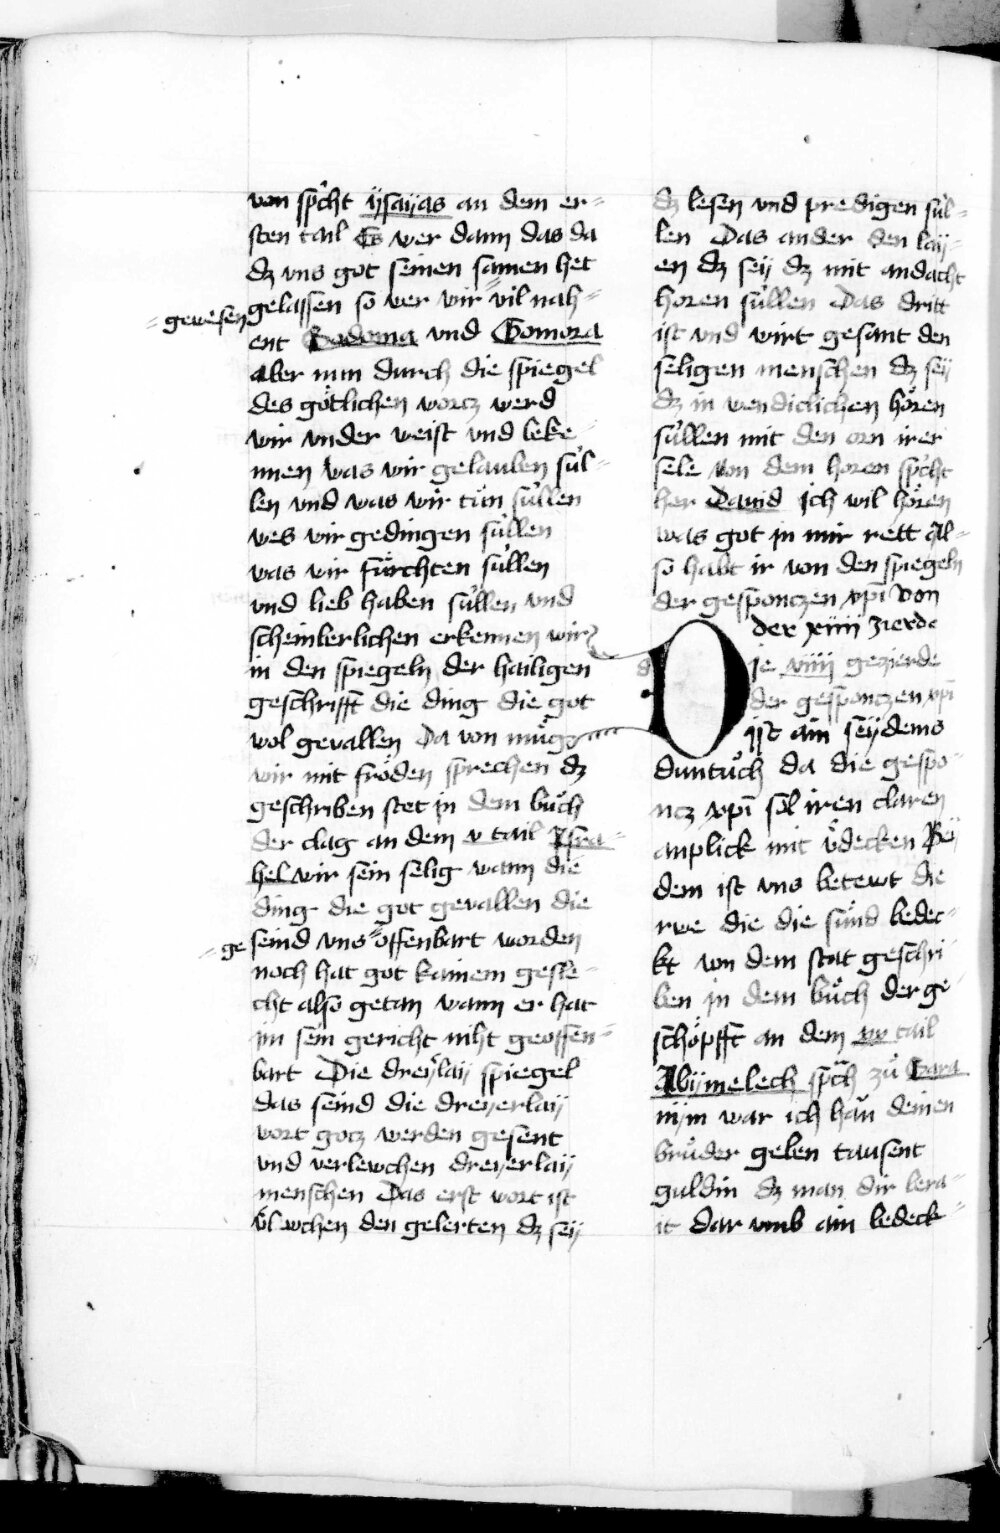 von sp̄cht ÿsaÿas an dem er⸗
sten tail Es wer dann das da
dz vns got seinen samen het
gelassen so wer wir vil nah⸗
⸗ gewesen
ent Sodoma vnd Gomora
aber nun durch die spiegel
des götlichen wortz werd
wir vnder weist vnd beke
nnen was wir gelauben sül⸗
len vnd was wir tün süllen
wes wir gedingen süllen
was wir fürchten süllen
vnd lieb haben süllen vnd
scheinberlichen erkennen wir
in den spiegeln der hailigen
geschrifft die ding die got
wol gevallen Da von mug
wir mit fröden sprechen dz
geschriben stet jn dem bůch
der clag an dem v tail Jsra⸗
hel wir sein selig wann die
ding die got gevallen die
⸗ ge
seind vns offenbart worden
noch hat got kainem gesle⸗
cht also getan wann er hat
jm sein gericht niht geoffen⸗
bart Die dreÿlaÿ spiegel
das seind die dreyerlaÿ
wort gotz werden gesent
vnd verlewchen dreyerlaÿ
menschen Das erst wort ist
v̈lwchen den gelerten dz seÿ
dz lesen vnd predigen sül⸗
len Das ander den laÿ⸗
en dz seÿ dz mit andacht
horen süllen Das dritt
ist vnd wirt gesant den
seligen menschen dz seÿ
dz in wendiclichen hören
süllen mit den orn irer
sele Von dem horen sp̄cht
her Dauid ich wil hören
was got jn mir rett Al⸗
so habt ir von den spiegeln
der gesponczen xp̄i Von
der xiiii zierde
d
Die viiii gezierde
der gesponczen xp̄i
jst ain seÿdems
duntůch da die gespo⸗
ncz xp̄i sol iren claren
anplick mit v̈decken Beÿ
dem ist vns betewt die
rwe die die sünd bedec⸗
kt von dem stat geschri⸗
ben jn dem bůch der ge⸗
schöpfft an dem xx tail
Abÿmelech sp̄ch zů Sara
nÿm war ich han deinen
brůder geben tausent
guldin dz man dir bera⸗
it dar vmb ain bedeck⸗